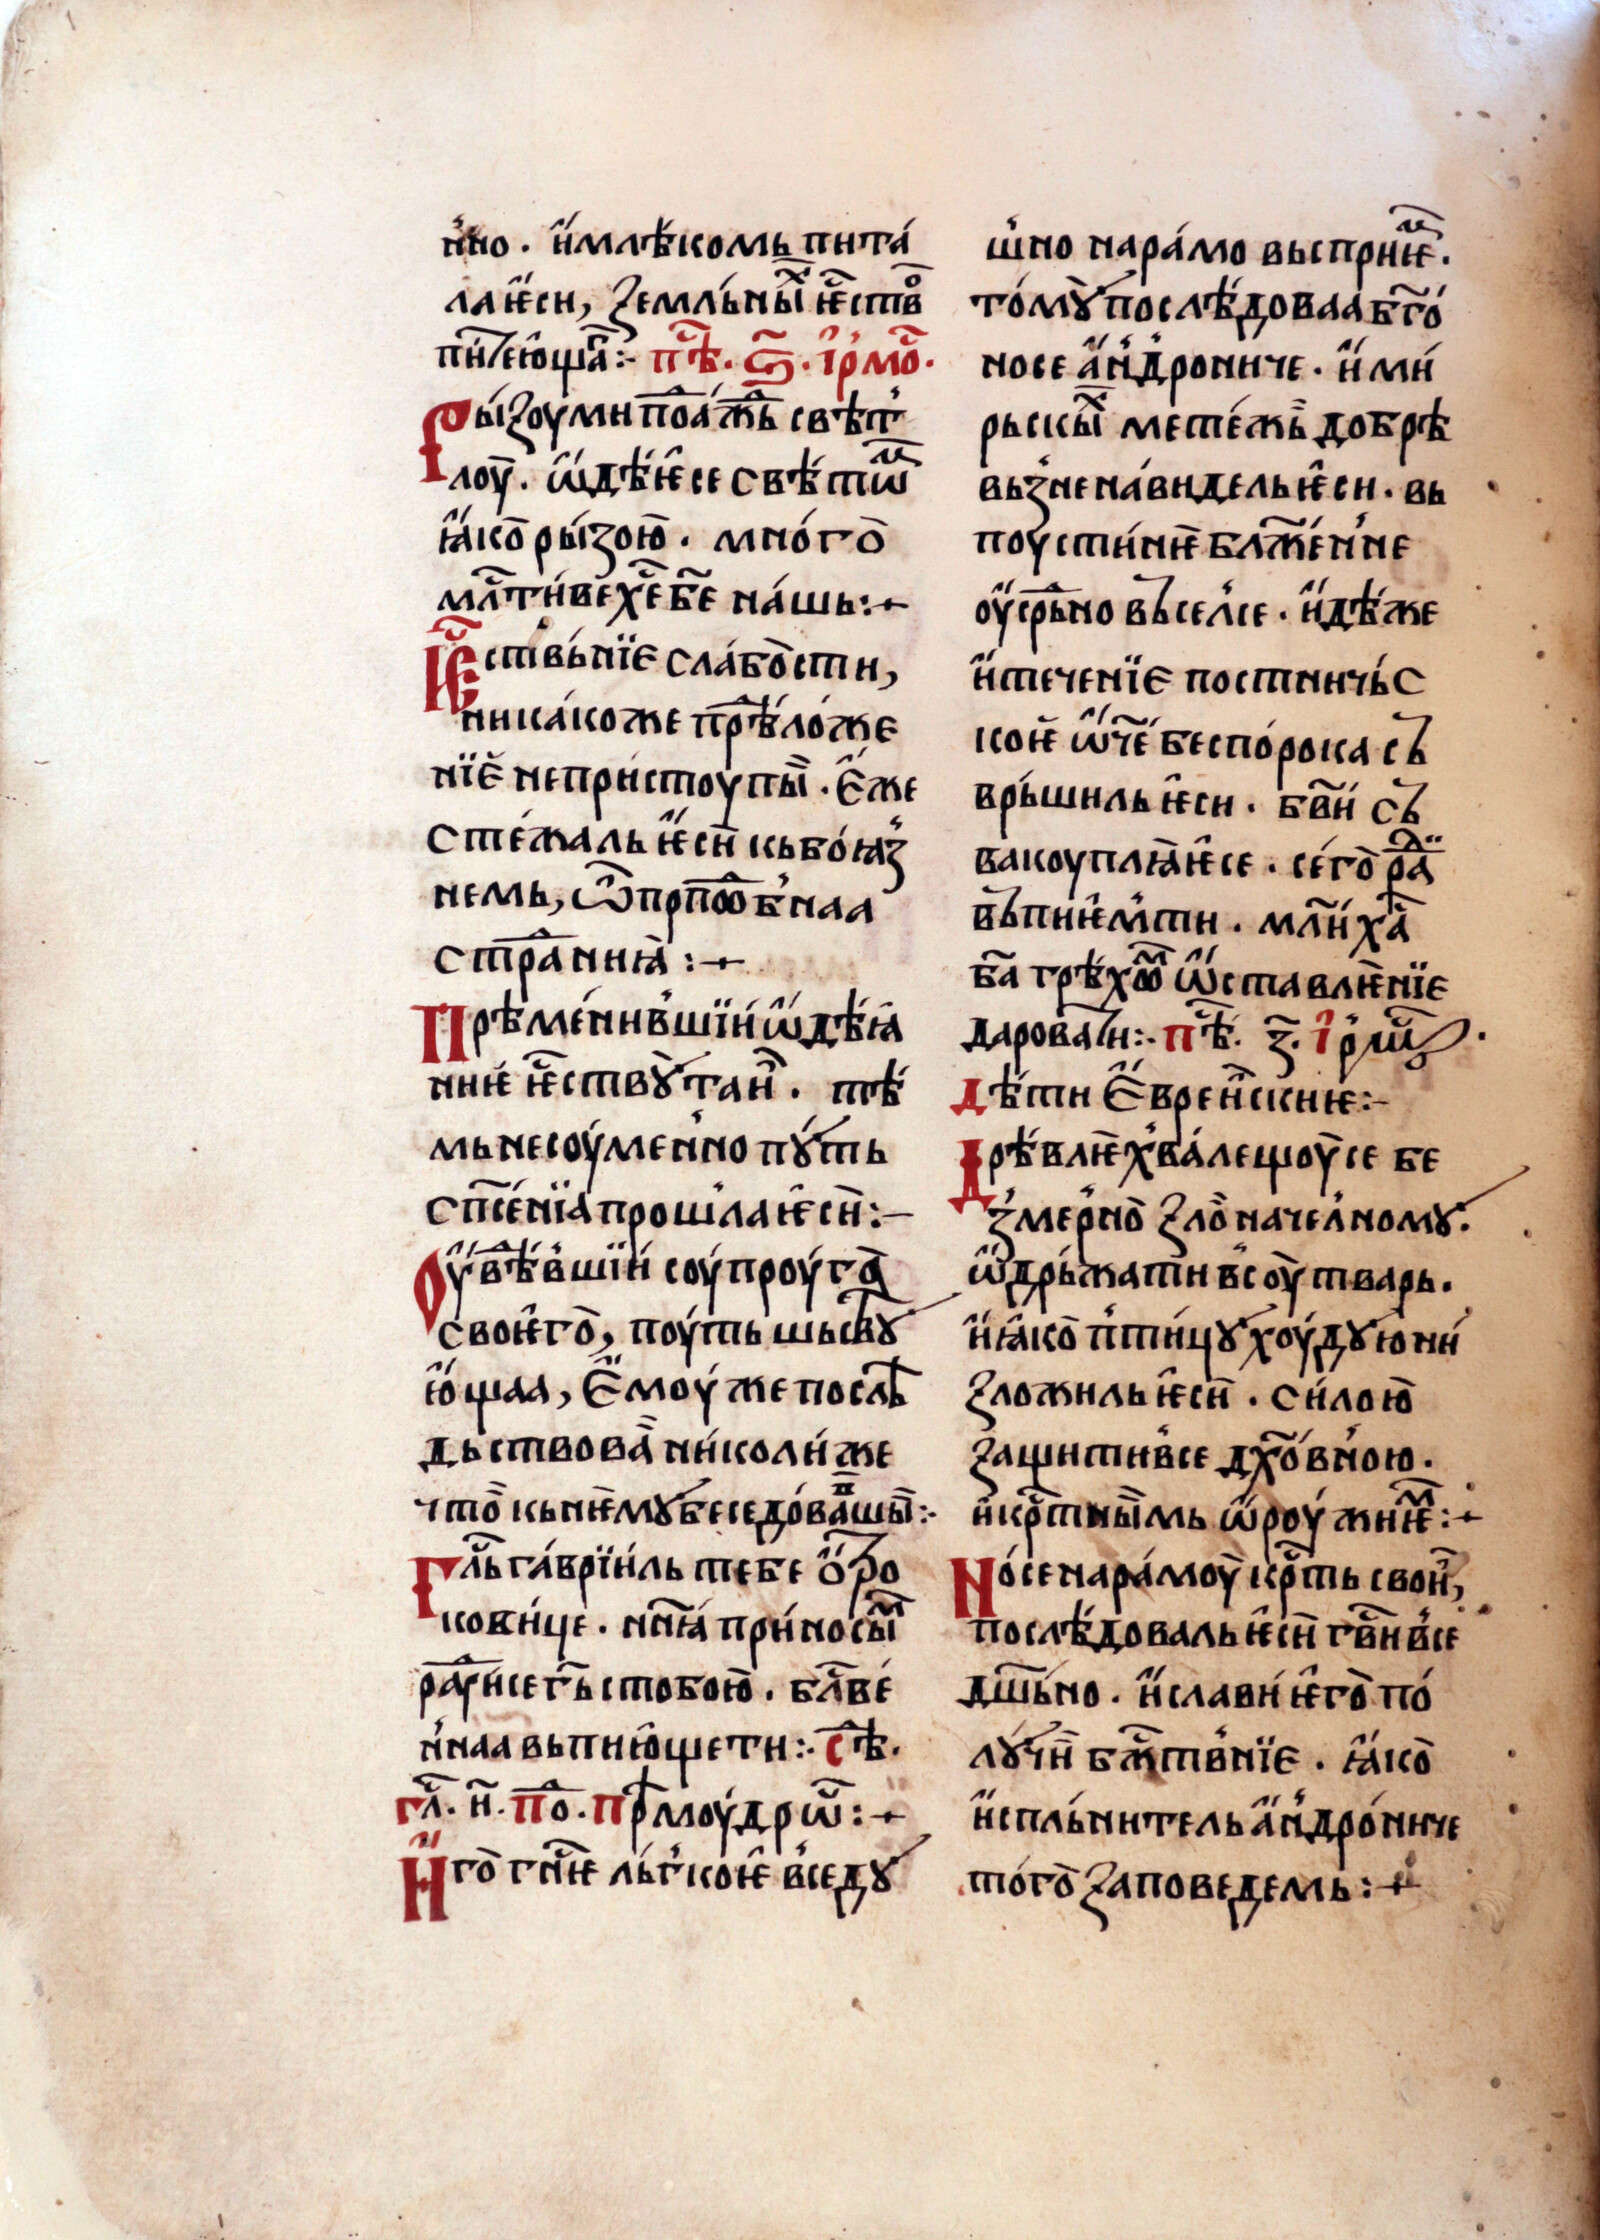 н҆но . и҆ млѣ́комь пита́
ла ѥ҆си , земль́ныⷯ ѥ҆ствоⷡ
пиⷮѥю҆щаⷢ҇ :· пⷭ҇ѣ . ѕ҃ . і҆рмоⷭ҇ .
Ры́зоу ми поⷣажⷣь свѣт҆
лоу . ѡ҆дѣ́ѥ҆ се свѣ́тѡⷨ
ꙗ҆ко ры́зою . мно́го
млⷭ҇ти́ве хе҃ бе҃ на́шь :+
Ѥⷭ҇ствь́нїе сла́бости ,
ника́коже прⷣѣло́же
нїе непри́стоупы . є҆же
стежаль ѥ҆си кь бо́ꙗз
немь , ѿ прпⷣоб҆наа
страⷣнниꙗ :+
Прѣме́нив҆шїи ѡ҆дѣ́ꙗ
ниѥ ѥⷭ҇ствꙋ та́и҆ . тѣ́
мь несоу́мен҆но пꙋть
спⷭ҇е́нїа прошла ѥ҆си :–
Оу҆вѣⷣв҆шїи соупроу́га
своѥ҆го , поу́ть шьсⷮвꙋ
ю҆щаа , є҆моу́ же послѣ
дьствова ни́коли́же
что кь нѥмꙋ бесе́дова́вⷲшы :·
Глⷭ҇ь га́врїиль тебе ѻ҆тро
кови́це . нн҃ꙗ при́носыⷨ
раⷣⷹи́ се гь҃ стобою . блⷭ҇ве́
н҆наа вьпию҆ще ти :· Сⷣѣ .
глⷭ҇ . и҃ . Поⷣ . Прⷨѣмоу́дрѡⷭ҇ :+
И҆го гнⷭ҇ѥ ль́г҆коѥ в҆седꙋ
ш҆но на ра́мо вьсприѥⷨ .
то́мꙋ послѣ́доваа бг҃о́
носе а҆н҆дрониче . и҆ ми́
рьскыⷯ мете́жь добрѣ
вьз҆нена́видель ѥ҆си . вь
поусти́нѥ блаⷤе́н҆не
оу҆срⷣьно въсел҆се . и҆дѣ́же
и҆ течѐнїе постничь́с
коѥ ѡ҆ч҃е беспо́рока съ
врь́шиль ѥ҆си . бв҃и́ съ
вакоуплꙗѥ҆се . се́го раⷣⷤи
въпиѥ҆м҆ ти . мл҃и́ ха҃
ба҃ грѣ́хѡⷨ ѡ҆ставлѥнїе
дароваⷮи :· Пⷭ҇ѣ . з҃ . І҆рмѡⷭ҇ .
Дѣ́ти є҆вреи҆скиѥ :–
Дрѣ́влѥ х҆ва́лещоу се бе
з҆мер҆но зло́начел҆номꙋ .
ѡ҆дрь́жати в҆соу тварь .
и҆ ꙗ҆ко п҆ти́цꙋ хоу́дꙋю ни́
зложиль ѥ҆си . си́лою
защитив҆се дх҃ов҆ною .
и҆ крⷭ҇тны́мь ѡ҆роу́жиѥⷨ :+
Но́се на ра́моу крⷭ҇ть свои ,
послѣ́доваль ѥ҆си гв҃и в҆се
дш҃ь́но . и҆ слави́ ѥ҆го по́
лꙋ́чи бжⷭ҇тв҆нїе . ꙗ҆ко
и҆спль́нитель а҆н҆дро́ниче
то́го заповедемь :+